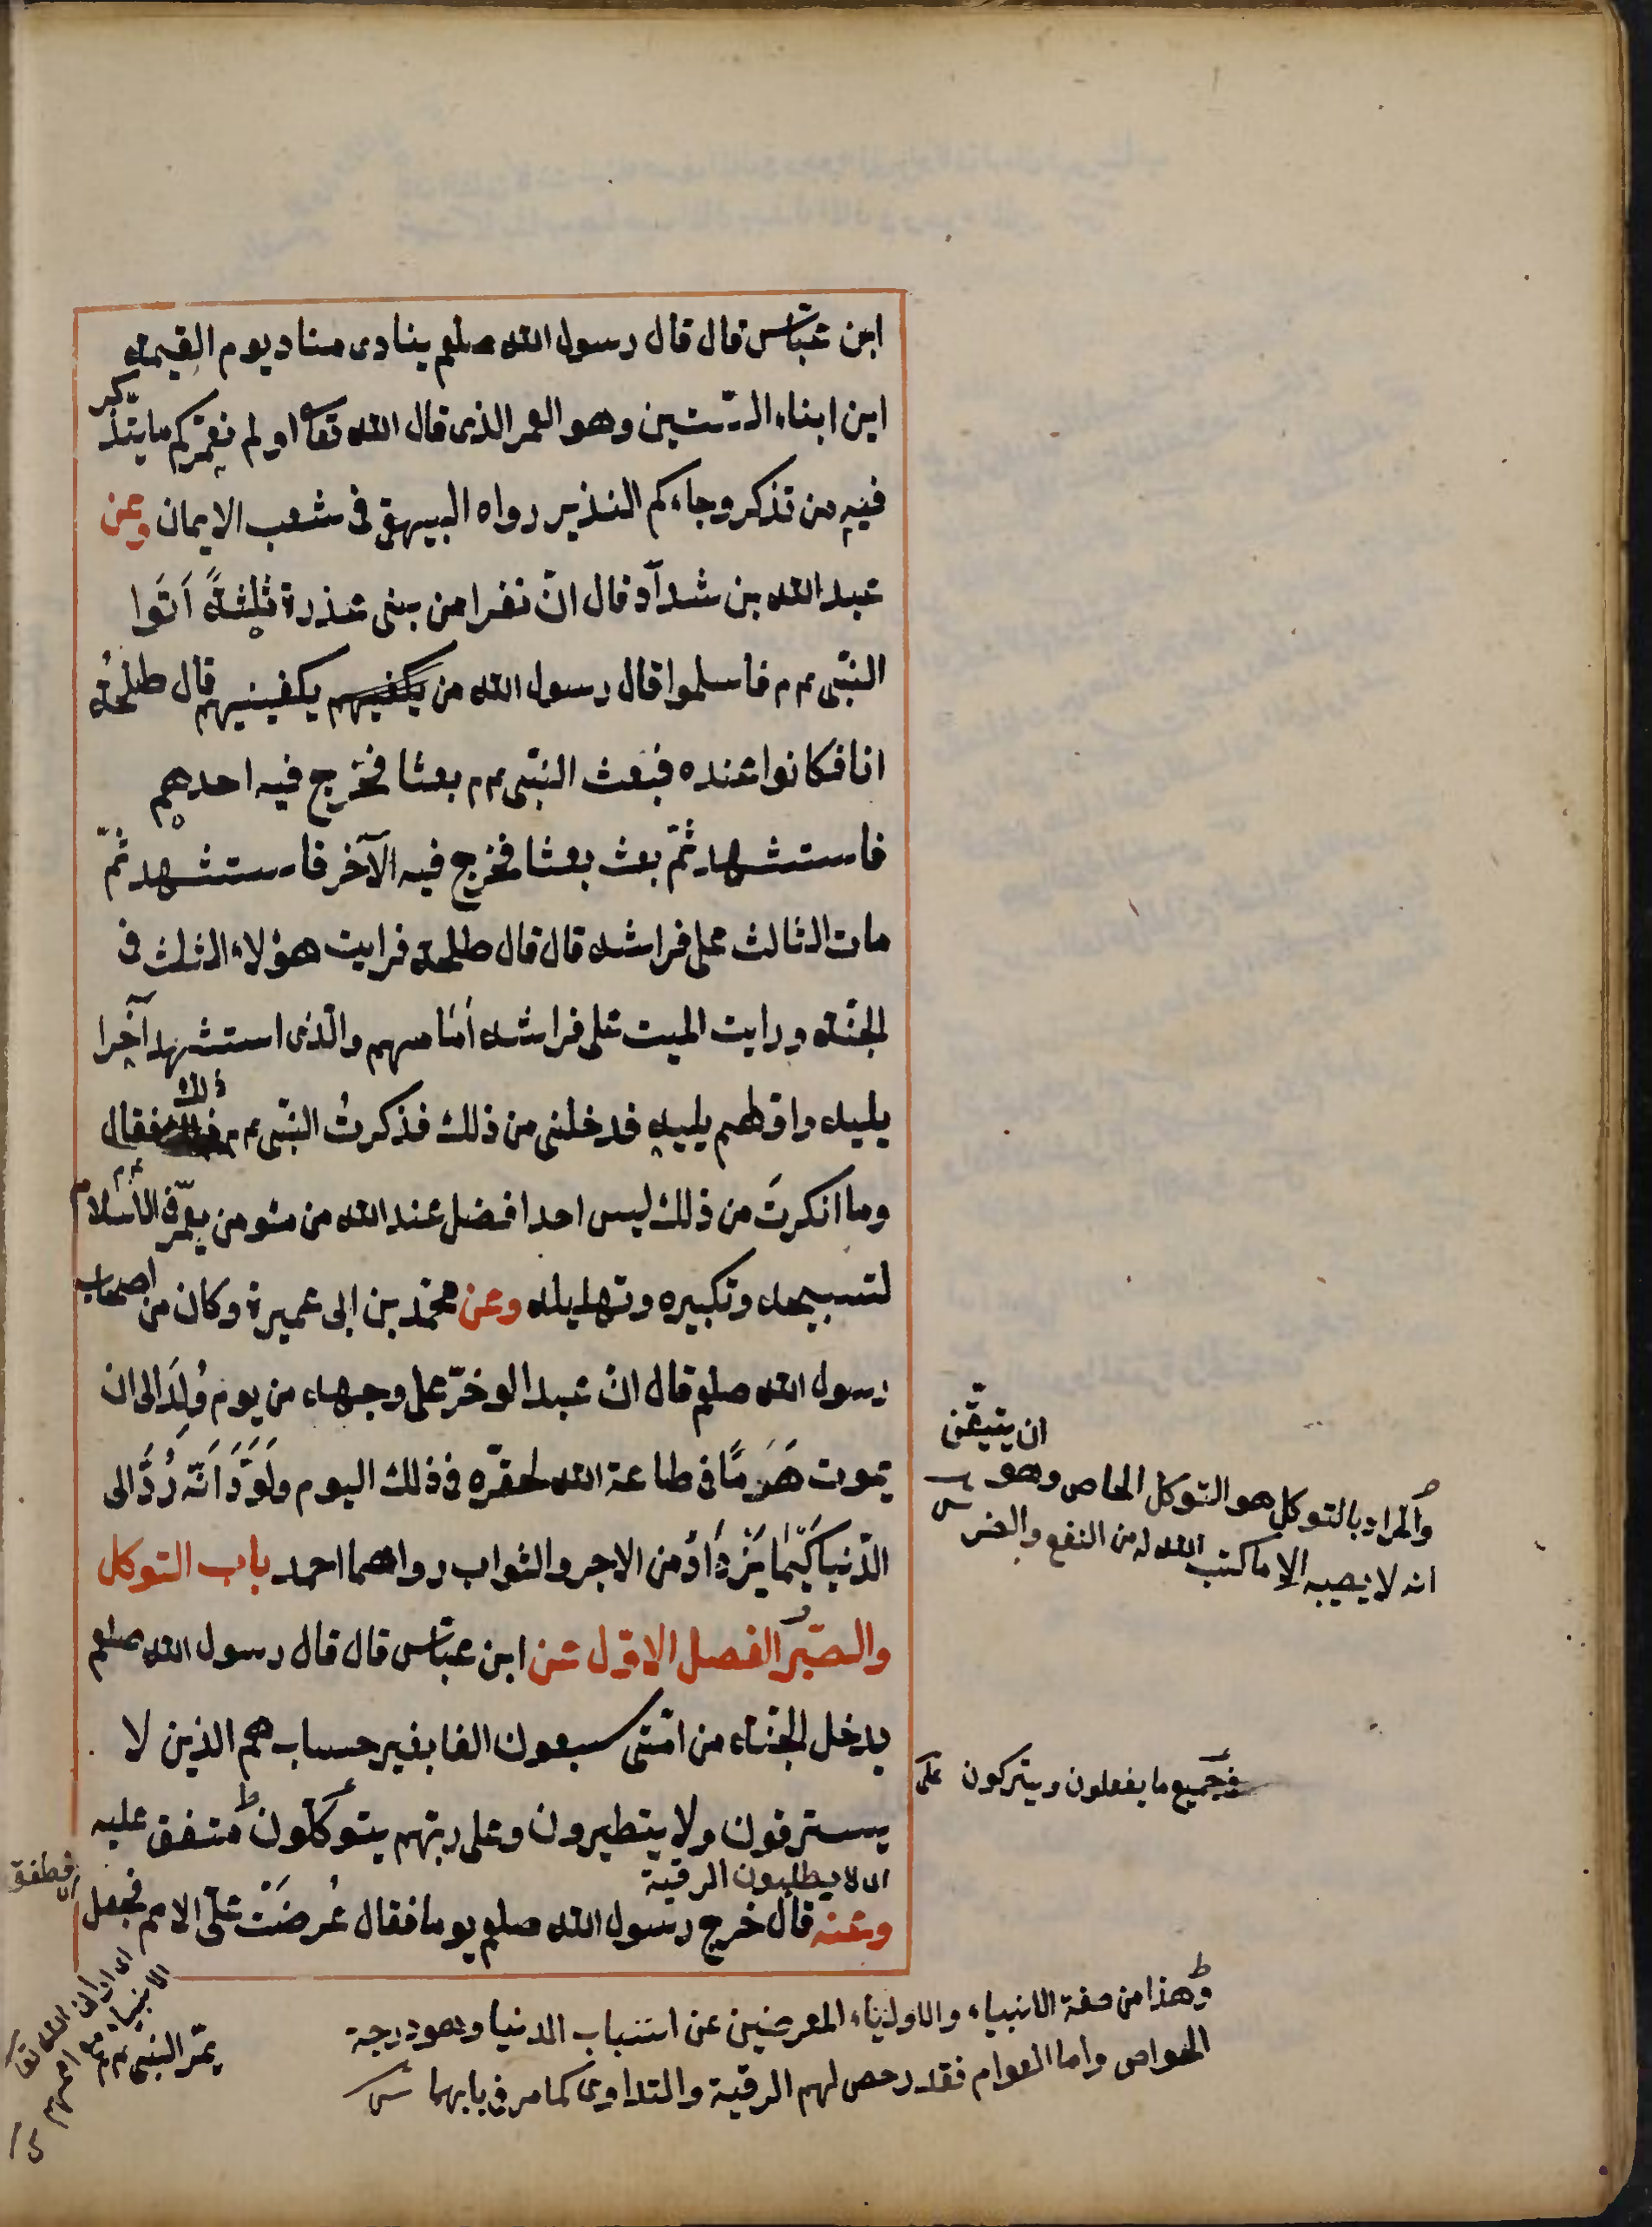 ابن عبّاس قال قال رسول الله صلعم ينادى مناد يوم القيمة
اين ابناء الستين وهو العمر الذى قال الله تعا او لم نعمّركم ما يتذكر
فيه من تذكر وجاءكم النذير رواه البيهقى فى شعب الايمان وعن
عبد الله بن شدآد قال انّ نفرا من بنى عذرة ثلثةً اَتَوا
النّبى عم فاسلموا قال رسول الله من يكفيهم يكفينيهم قال طلحةُ
انا فكانوا عنده فبعث النبّى عم بعثا فخرج فيه احدهم
فاستشهد ثمّ بعث بعثا فخرج فيه الآخر فاستشهد ثمّ
مات الثالث على فراشه قال قال طلحة فرايت هؤلاء الثلث فى
الجنّة ورايت الميت على فراشه اَمَامهم والّذى استشهد آخِرا
يليه واولهم يليه فدخلنى من ذلك فذكرتُ النبّى عم ذلك فقال
وما انكرتَ من ذلك ليس احد افضل عند الله من مئومن يعمّر فى الاسلام
لتسبيحه وتكبيره وتهليله وعن محمّد بن ابى عميرة وكان من اصحاب
رسول الله صلعم قال انّ عبدا لو خرّ على وجهه من يوم وُلِدَ الى ان
يموت هَرَمًا فى طاعة الله لحقّره فى ذلك اليوم ولَوَدَّ اَنّه رُدَّ الى
الدّنيا كَيْمَا يَزْدَادَ من الاجر والثواب رواهما احمد باب التوكل
والصّبر الفصل الاوّل عن ابن عبّاس قال قال رسول الله صلعم
يدخل الجنّة من امّتى سبعون الفا بغير حساب هم الذين لا
يسترقون ولا يتطيرون وعلى ربّهم يتوكّلون متفق عليه
اى لا يطلبون الرقية
وعنه قال خرج رسول الله صلعم يوما فقال عُرِضَتْ علىّ الامم فجعل
فطفق
يمّر النبّى عم
ان يتيقّن
والمراد بالتوكل هو التوكل الخاص وهو
انه لا يصيبه الا ما كتب الله له من النفع والضر
فى جميع ما يفعلون ويتركون
وهذا من صفة الانبياء والاولياء المعرضين عن اسباب الدنيا وهو درجة
الخواص واما العوام فقد رخص لهم الرقية والتداوى كما مر فى بابهما